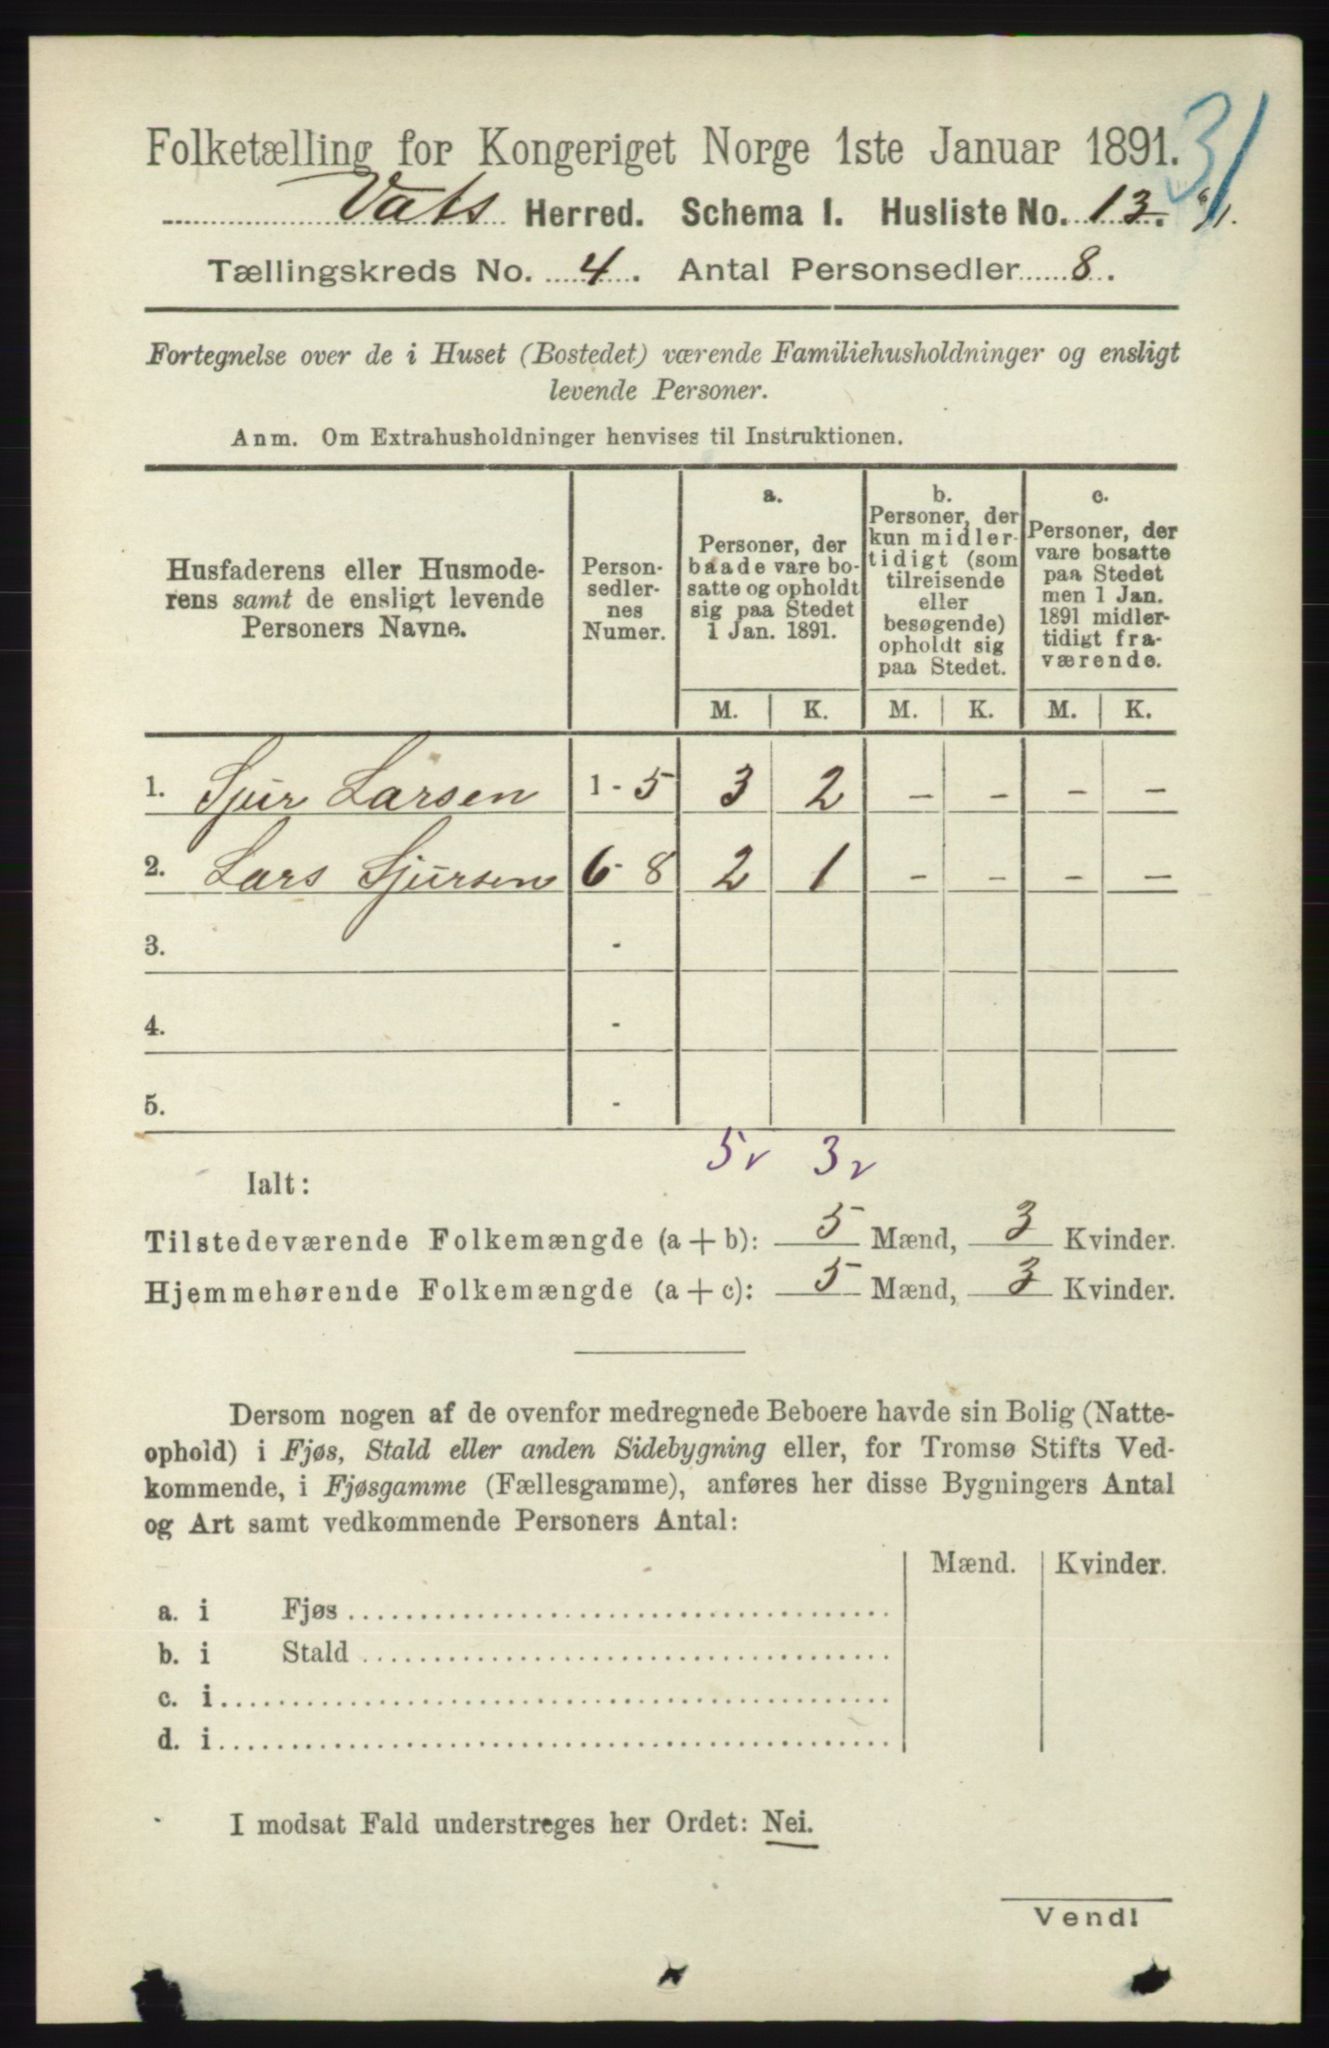 31
Folketælling for Kongeriget Norge 1ste Januar 1891.
Vats Herred. Schema I. Husliste No. 13. 6/1.
Tællingskreds No. 4. Antal Personsedler 8.
Fortegnelse over de i Huset (Bostedet) værende Familiehusholdninger og ensligt
levende Personer.
Anm. Om Extrahusholdninger henvises til Instruktionen.
Husfaderens eller Husmode-
rens samt de ensligt levende
Personers Navne.
Person-
sedler-
nes
Numer.
a.
Personer, der
baade vare bo-
satte og opholdt
sig paa Stedet
1 Jan. 1891.
b.
Personer, der
kun midler-
tidigt (som
tilreisende
eller
besøgende)
opholdt sig
paa Stedet.
c.
Personer, der
vare bosatte
paa Stedet
men 1 Jan.
1891 midler-
tidigt fra-
værende.
M. K. M. K. M. K.
1. Sjur Larsen 1-5 3 2 - - - -
2. Lars Sjursen 6-8 2 1 - - - -
3. -
4. -
5. -
5v 3v
Ialt:
Tilstedeværende Folkemængde (a + b): 5 Mænd, 3 Kvinder.
Hjemmehørende Folkemængde (a + c): 5 Mænd, 3 Kvinder.
Dersom nogen af de ovenfor medregnede Beboere havde sin Bolig (Natte-
ophold) i Fjøs, Stald eller anden Sidebygning eller, for Tromsø Stifts Ved-
kommende, i Fjøsgamme (Fællesgamme), anføres her disse Bygningers Antal
og Art samt vedkommende Personers Antal:
Mænd. Kvinder.
a. i Fjøs
b. i Stald
c. i
d. i
I modsat Fald understreges her Ordet: Nei.
Vend!